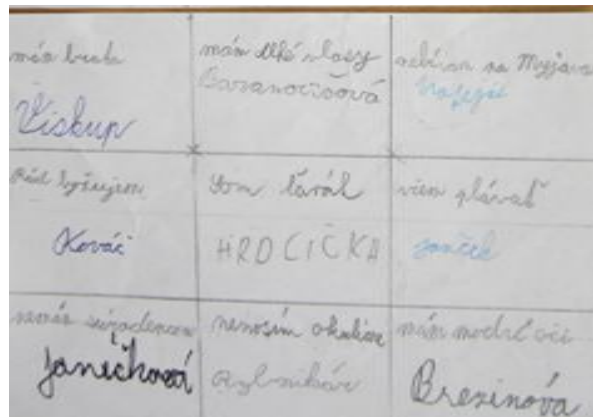 mám brata
Viskup
mám dlhé vlasy
Baranovičová
nebývam na Myjave
rád lyžujem
Kováč
som ľavák
HRDLIČKA
viem plávať
Janček
nemám súrodencov
Janečková
nenosím okuliare
mám modré oči
Brezinová